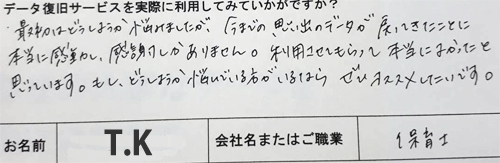 データ復旧サービスを実際に利用してみていかがですか？
最初はどうしようか悩みましたが、今までの思い出のデータが戻ってきたことに
本当に感動し、感謝しかありません。利用させてもらって本当によかったと
思っています。もし、どうしようか悩んでいる方がいるなら ぜひオススメしたいです。
お名前 T.K 会社名またはご職業 保育士